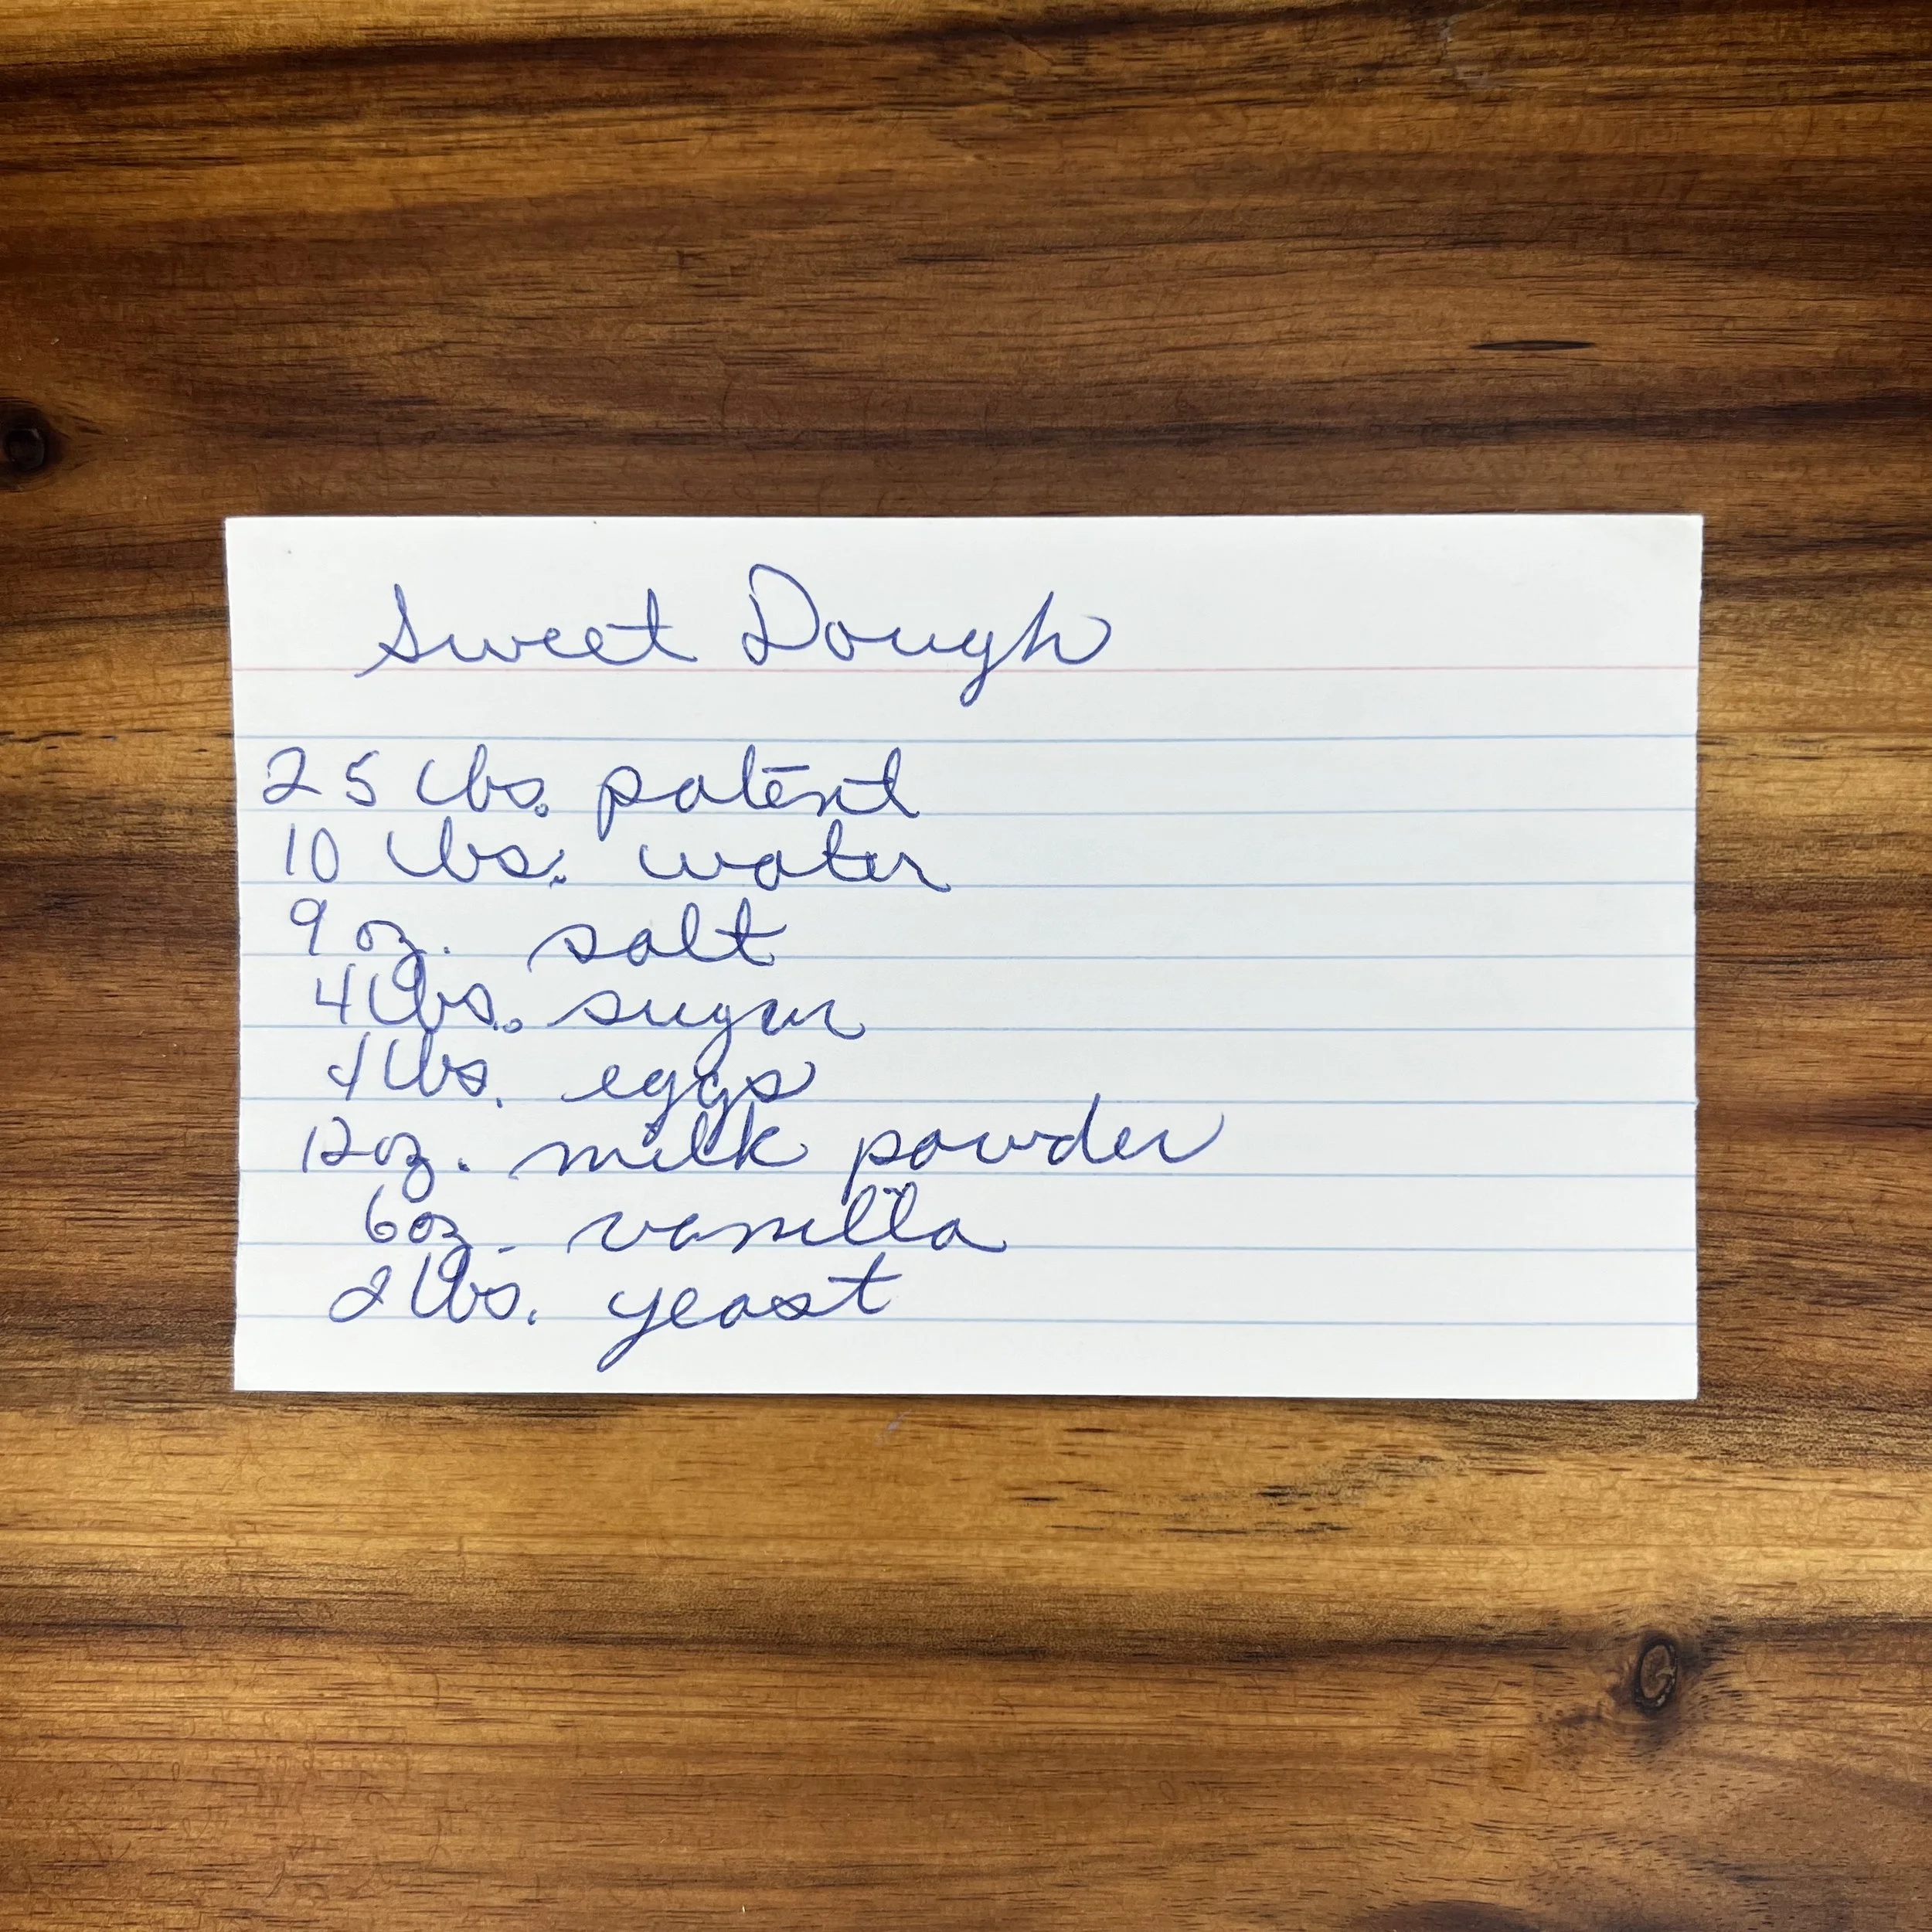 Sweet Dough
25 lbs. patent
10 lbs. water
9 oz. salt
4 lbs. sugar
4 lbs. eggs
12 oz. milk powder
6 oz. vanilla
2 lbs. yeast